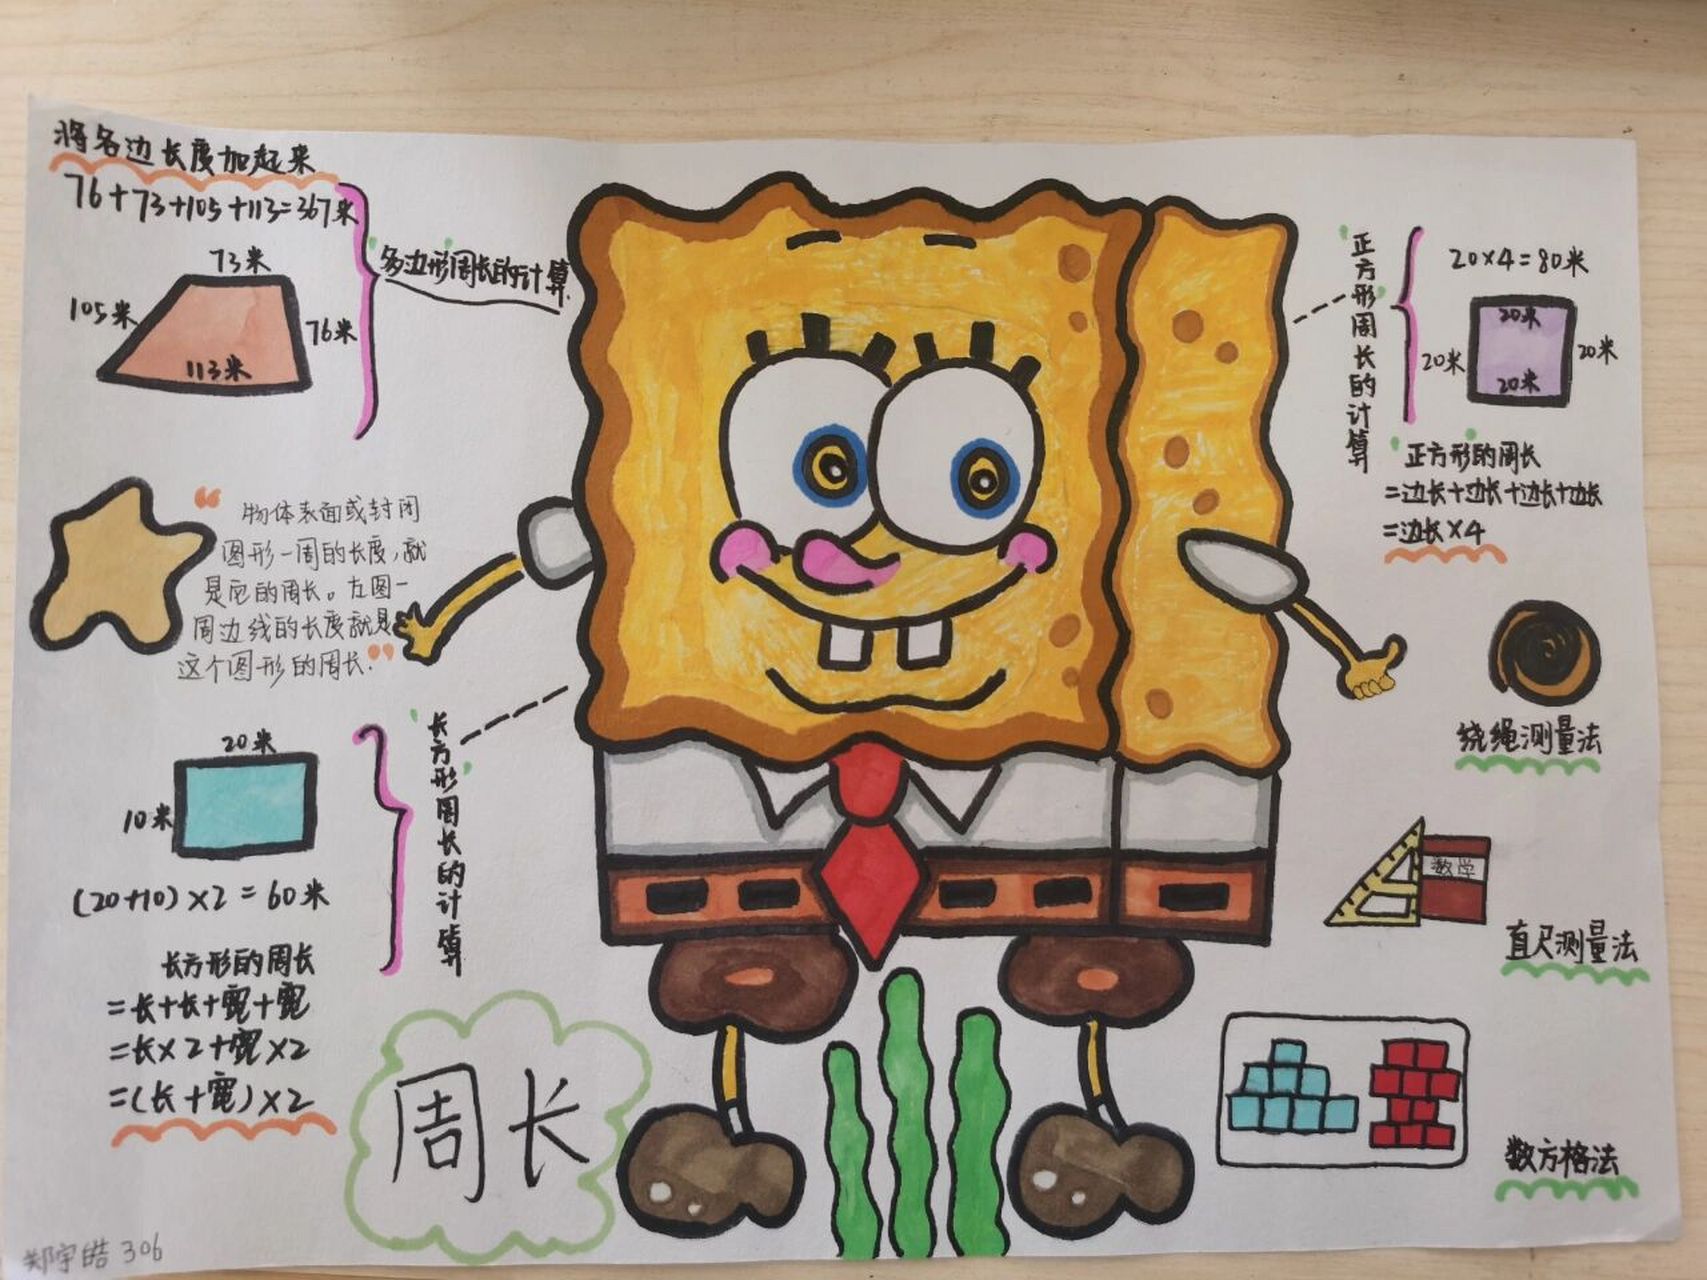 将各边长度加起来
76+73+105+113=367米
73米
105米
76米
113米
多边形周长的计算
物体表面或封闭
图形一周的长度,就
是它的周长。左图一
周边线的长度就是
这个图形的周长.
20米
10米
(20+10)×2=60米
长方形周长的计算
长方形的周长
=长+长+宽+宽
=长×2+宽×2
=(长+宽)×2
周长
郑宇皓 306
正方形周长的计算
20×4=80米
20米
20米
20米
20米
正方形的周长
=边长+边长+边长+边长
=边长×4
绕绳测量法
数学
直尺测量法
数方格法